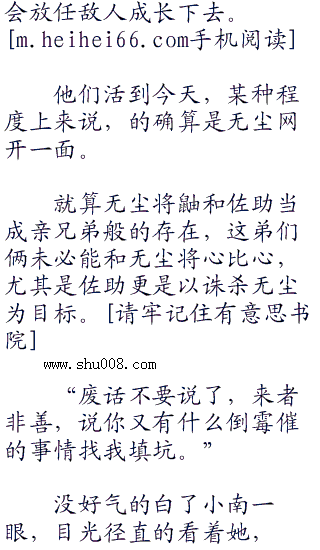 会放任敌人成长下去。
[m.heihei66.com手机阅读]
他们活到今天，某种程
度上来说，的确算是无尘网
开一面。
就算无尘将鼬和佐助当
成亲兄弟般的存在，这弟们
俩未必能和无尘将心比心，
尤其是佐助更是以诛杀无尘
为目标。[请牢记住有意思书
院]
www.shu008.com
“废话不要说了，来者
非善，说你又有什么倒霉催
的事情找我填坑。”
没好气的白了小南一
眼，目光径直的看着她，